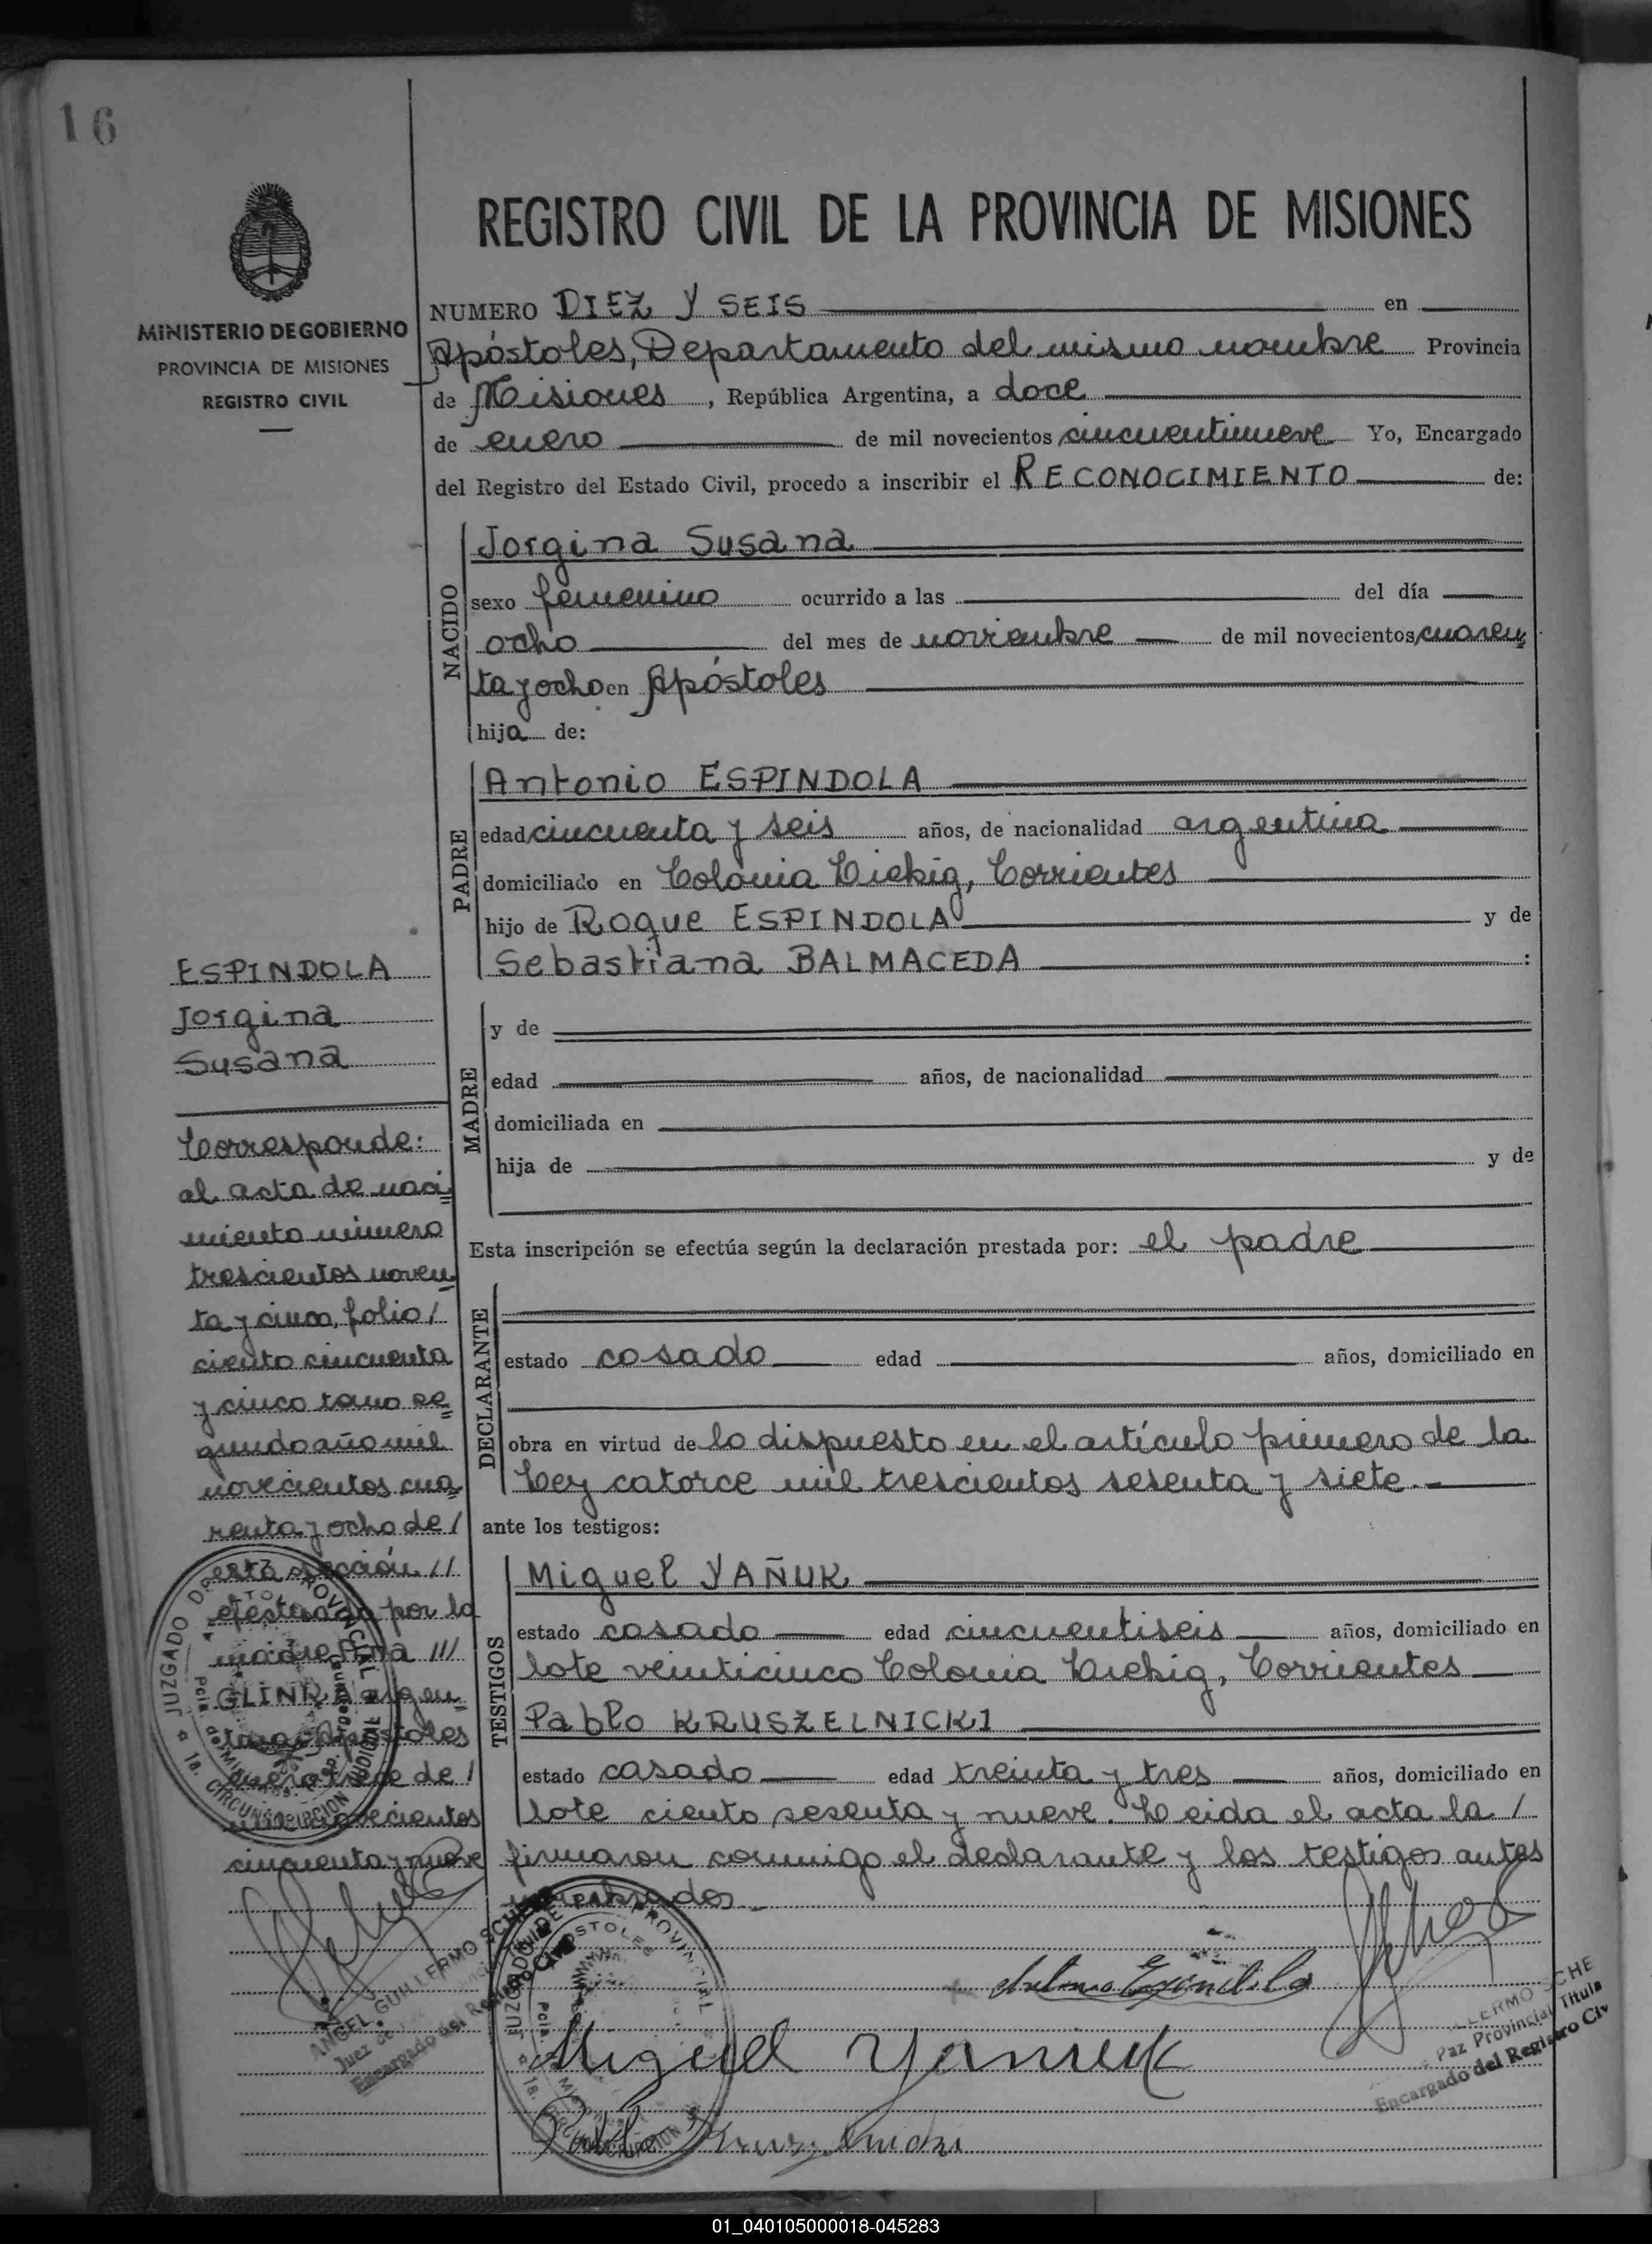 16
REGISTRO CIVIL DE LA PROVINCIA DE MISIONES
MINISTERIO DE GOBIERNO
PROVINCIA DE MISIONES
REGISTRO CIVIL
NUMERO DIEZ Y SEIS en
Apóstoles, Departamento del mismo nombre Provincia
de Misiones, República Argentina, a doce
de enero de mil novecientos cincuentinueve Yo, Encargado
del Registro del Estado Civil, procedo a inscribir el RECONOCIMIENTO de:
NACIDO
Jorgina Susana
sexo femenino ocurrido a las del día
ocho del mes de noviembre de mil novecientos cuaren
ta y ocho en Apóstoles
hija de:
PADRE
Antonio ESPINDOLA
edad cincuenta y seis años, de nacionalidad argentina
domiciliado en Colonia Liebig, Corrientes
hijo de Roque ESPINDOLA y de
Sebastiana BALMACEDA :
MADRE
y de
edad años, de nacionalidad
domiciliada en
hija de y de
Esta inscripción se efectúa según la declaración prestada por: el padre
DECLARANTE
estado casado edad años, domiciliado en
obra en virtud de lo dispuesto en el artículo primero de la
Ley catorce mil trescientos sesenta y siete.-
ante los testigos:
TESTIGOS
Miguel YAÑUK
estado casado edad cincuentiseis años, domiciliado en
lote veinticinco Colonia Liebig, Corrientes
Pablo KRUSZELNICKI
estado casado edad treinta y tres años, domiciliado en
lote ciento sesenta y nueve. Leida el acta la /
firmaron conmigo el declarante y los testigos antes
nombrados.-
ESPINDOLA
Jorgina
Susana
Corresponde:
al acta de naci=
miento número
trescientos noven=
ta y cinco, folio /
ciento cincuenta
y cinco tomo se=
gundo año mil
novecientos cua=
renta y ocho de /
esta sección //
efectuado por la
madre Ana ///
GLINKA argen=
tina Apóstoles
enero trece de /
mil novecientos
cincuenta y nueve
JUZGADO DE PAZ PROVINCIAL
APOSTOLES
Pcia. de Misiones
1a. CIRCUNSCRIPCION JUDICIAL
ANGEL GUILLERMO SCHE
Juez de
Encargado del Registro Civil
JUZGADO DE PAZ PROVINCIAL
APOSTOLES
Pcia. Misiones
1a. CIRCUNSCRIPCION
Antonio Espindola
Miguel Yanieuk
Pablo
LLERMO SCHE
Paz Provincial Titula
Encargado del Registro Civ
01_040105000018-045283